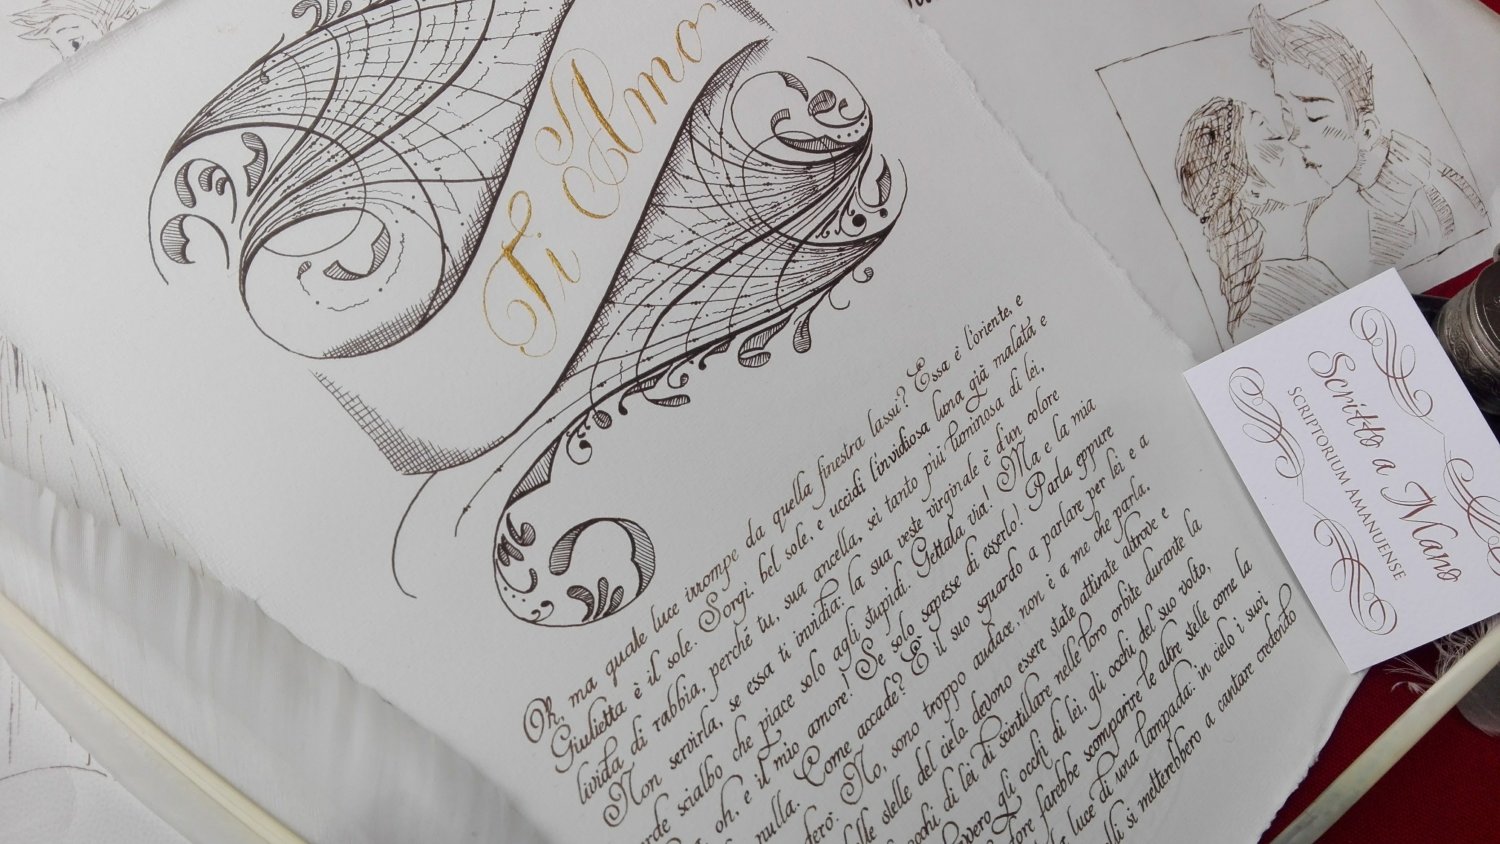 Ti Amo
Oh, ma quale luce irrompe da quella finestra lassù? Essa è l'oriente, e
Giulietta è il sole. Sorgi, bel sole, e uccidi l'invidiosa luna già malata e
livida di rabbia, perché tu, sua ancella, sei tanto più luminosa di lei.
Non servirla, se essa ti invidia: la sua veste virginale è d'un colore
scialbo che piace solo agli stupidi. Gettala via! Ma è la mia
oh, è il mio amore! Se solo sapesse di esserlo! Parla eppure
nulla. Come accade? È il suo sguardo a parlare per lei e a
No, sono troppo audace, non è a me che parla.
stelle del cielo devono essere state attirate altrove e
occhi di lei di scintillare nelle loro orbite durante la
gli occhi di lei, gli occhi del suo volto,
farebbe scomparire le altre stelle come la
luce di una lampada: in cielo i suoi
si metterebbero a cantare credendo
Scritto a Mano
SCRIPTORIUM AMANUENSE